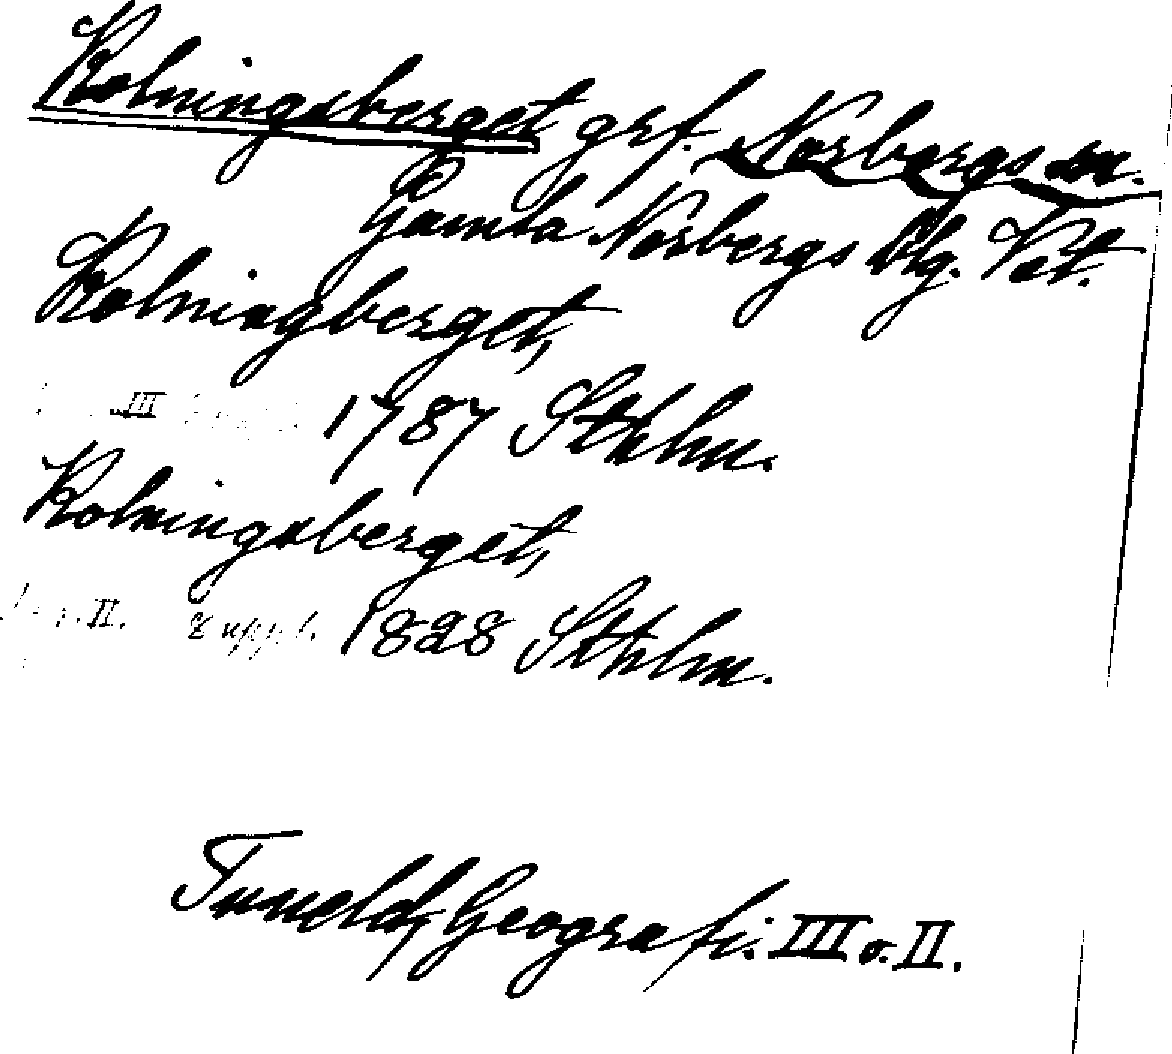 Kolningsberget grf. Norbergs sn.
Gamla Norbergs blg. Vstl.
Kolningberget,
III 1787 Sthlm.
Kolningsberget,
II. Suppl. 1828 Sthlm.
Tuneld, Geografi. III o. II.